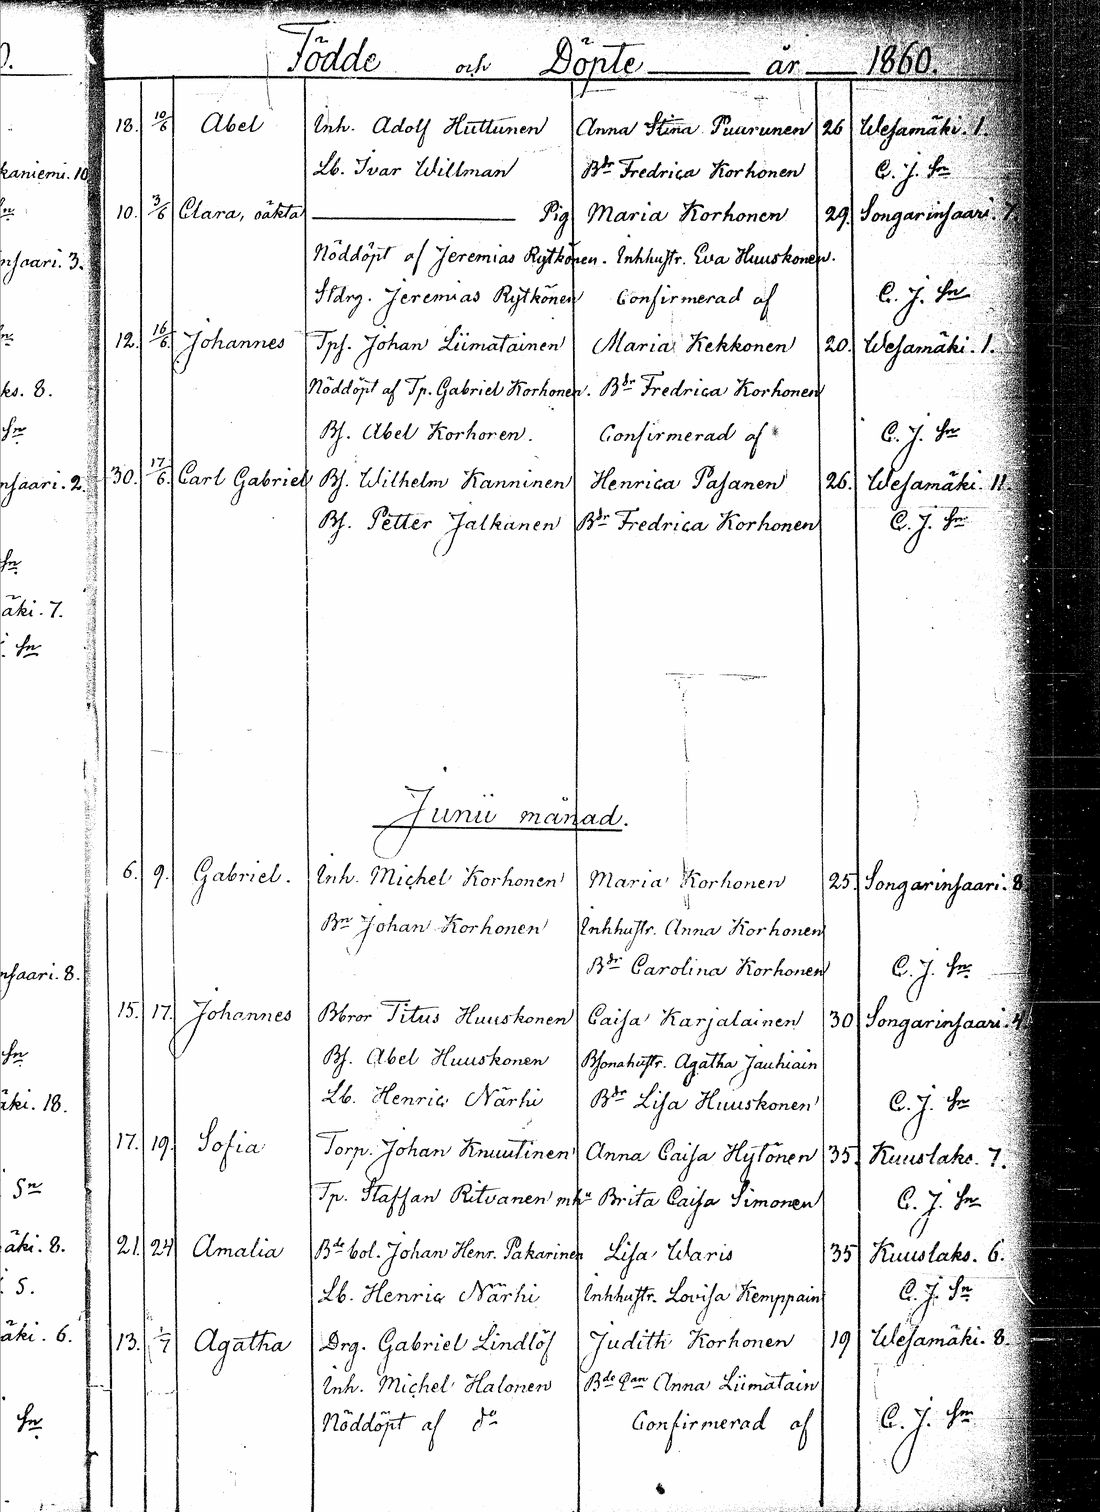 Födde och Döpte år 1860.
18. 10/6 Abel Inh. Adolf Huttunen Anna Stina Puurunen 26 Wesamäki. 1.
Lb. Ivar Willman Bdr Fredrica Korhonen C. J. Sn
10. 3/6 Clara, oäkta Pig Maria Korhonen 29. Songarinsaari. 7.
Nöddöpt af Jeremias Rytkönen. Inhhustr. Eva Huuskonen.
Stdrg. Jeremias Rytkönen Confirmerad af C. J. Sn
12. 16/6 Johannes Tps. Johan Liimatainen Maria Kekkonen 20. Wesamäki. 1.
Nöddöpt af Tp. Gabriel Korhonen. Bdr Fredrica Korhonen
Bs. Abel Korhoren. Confirmerad af C. J. Sn
30. 17/6. Carl Gabriel Bs. Wilhelm Kanninen Henrica Pasanen 26. Wesamäki. 11.
Bs. Petter Jalkanen Bdr Fredrica Korhonen C. J. Sn
Junii månad.
6. 9. Gabriel. Inh. Michel Korhonen Maria Korhonen 25. Songarinsaari. 8
Bn Johan Korhonen Inhhustr. Anna Korhonen
Bdr Carolina Korhonen C. J. Sn
15. 17. Johannes Bbror Titus Huuskonen Caisa Karjalainen 30 Songarinsaari. 4.
Bs. Abel Huuskonen Bsonahustr. Agatha Jauhiain
Lb. Henric Närhi Bdr Lisa Huuskonen C. J. Sn
17. 19. Sofia Torp. Johan Knuutinen Anna Caisa Hytönen 35. Kuuslaks. 7.
Tp. Staffan Ritvanen mhu Brita Caisa Simonen C. J. Sn
21. 24 Amalia Bde bol. Johan Henr. Pakarinen Lisa Waris 35 Kuuslaks. 6.
Lb. Henric Närhi Inhhustr. Lovisa Kemppain C. J. Sn
13. 1/7 Agatha Drg. Gabriel Lindlöf Judith Korhonen 19 Wesamäki. 8.
Inh. Michel Halonen Bde Anna Liimatain
Nöddöpt af do Confirmerad af C. J. Sn